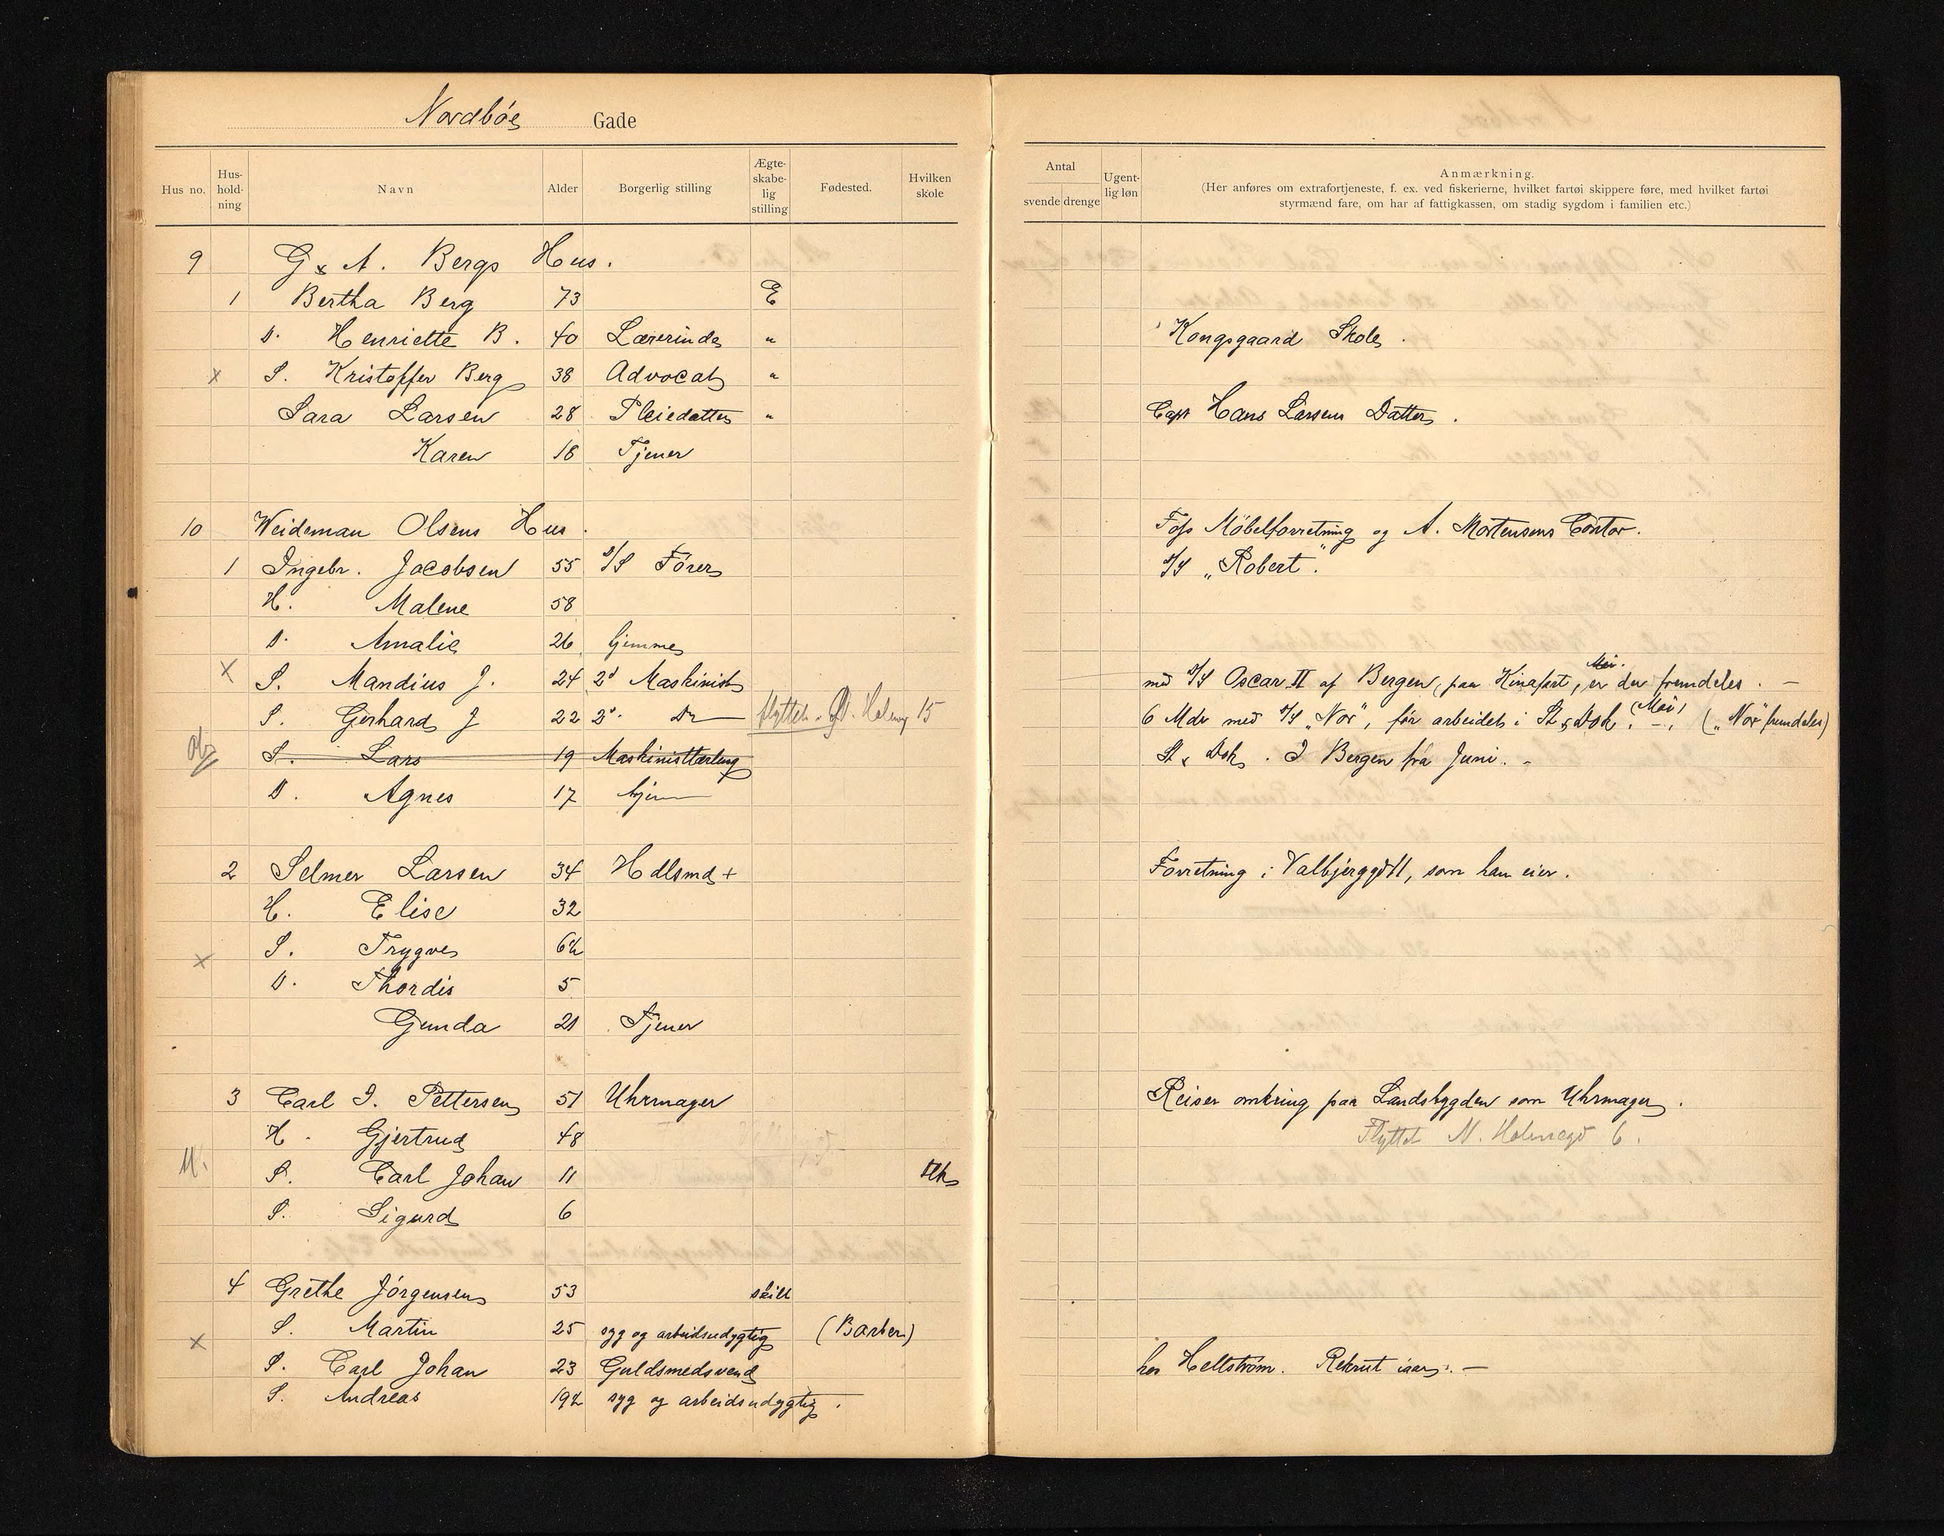 Nordbøe Gade
Hus no. Hus-hold-ning Navn Alder Borgerlig stilling Ægte-skabe-lig stilling Fødested. Hvilken skole
Antal svende drenge Ugent-lig løn Anmærkning.
(Her anføres om extrafortjeneste, f. ex. ved fiskerierne, hvilket fartøi skippere føre, med hvilket fartøi
styrmænd fare, om har af fattigkassen, om stadig sygdom i familien etc.)
9 G & A. Bergs Hus.
1 Bertha Berg 73 E
D. Henriette B. 40 Lærerinde " Kongsgaard Skole.
x S. Kristoffer Berg 38 Advocat "
Sara Larsen 28 Pleiedatter " Capt Hans Larsens Datter.
Karen 18 Tjener
10 Weideman Olsens Hus. Møbelforretning og A. Mortensens Contor.
1 Ingebr. Jacobsen 55 S/S Fører S/S „Robert".
H. Malene 58
D. Amalie 26 hjemme
x S. Mandius J. 24 2d Maskinist med S/S Oscar II af Bergen, paa Kinafart, er der fremdeles. – Mai.
S. Gerhard J 22 2d. Do flyttet Holmeg 15 6 Mdr med S/S „Nor", før arbeidet i St & Dok. – (Mai) („Nor" fremdeles)
S. Lars 19 Maskinistlærling St & Dok. I Bergen fra Juni. –
D. Agnes 17 hjem
2 Selmer Larsen 34 Hdlsmd + Forretning i Valbjerggd 11, som han eier.
H. Elise 32
x S. Trygve 6½
D. Thordis 5
Gunda 21 Tjener
3 Carl I. Pettersen 51 Uhrmager Reiser omkring paa Landsbygden som Uhrmager.
H. Gjertrud 48 Flyttet N. Holmegd 6.
M. S. Carl Johan 11
S. Sigurd 6
4 Grethe Jørgensen 53 skilt
x S. Martin 25 syg og arbeidsudygtig (Barber)
S. Carl Johan 23 Guldsmedsvend hos Hellstrøm. Rekrut iaar. –
S. Andreas 19½ syg og arbeidsudygtig.